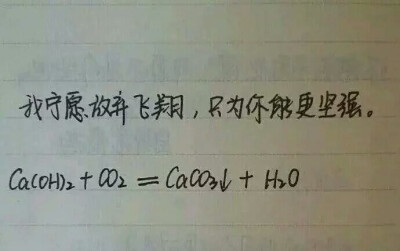 我宁愿放弃飞翔，只为你能更坚强。
Ca(OH)₂ + CO₂ = CaCO₃↓ + H₂O